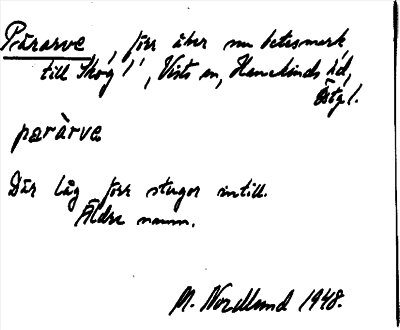 Pärarve, förr åker nu betesmark,
till Skog 1¹, Vists sn, Hanekinds hd,
Östgl.
pæràrve
Där låg förr stugor intill.
Äldre namn.
M. Nordlund 1948.